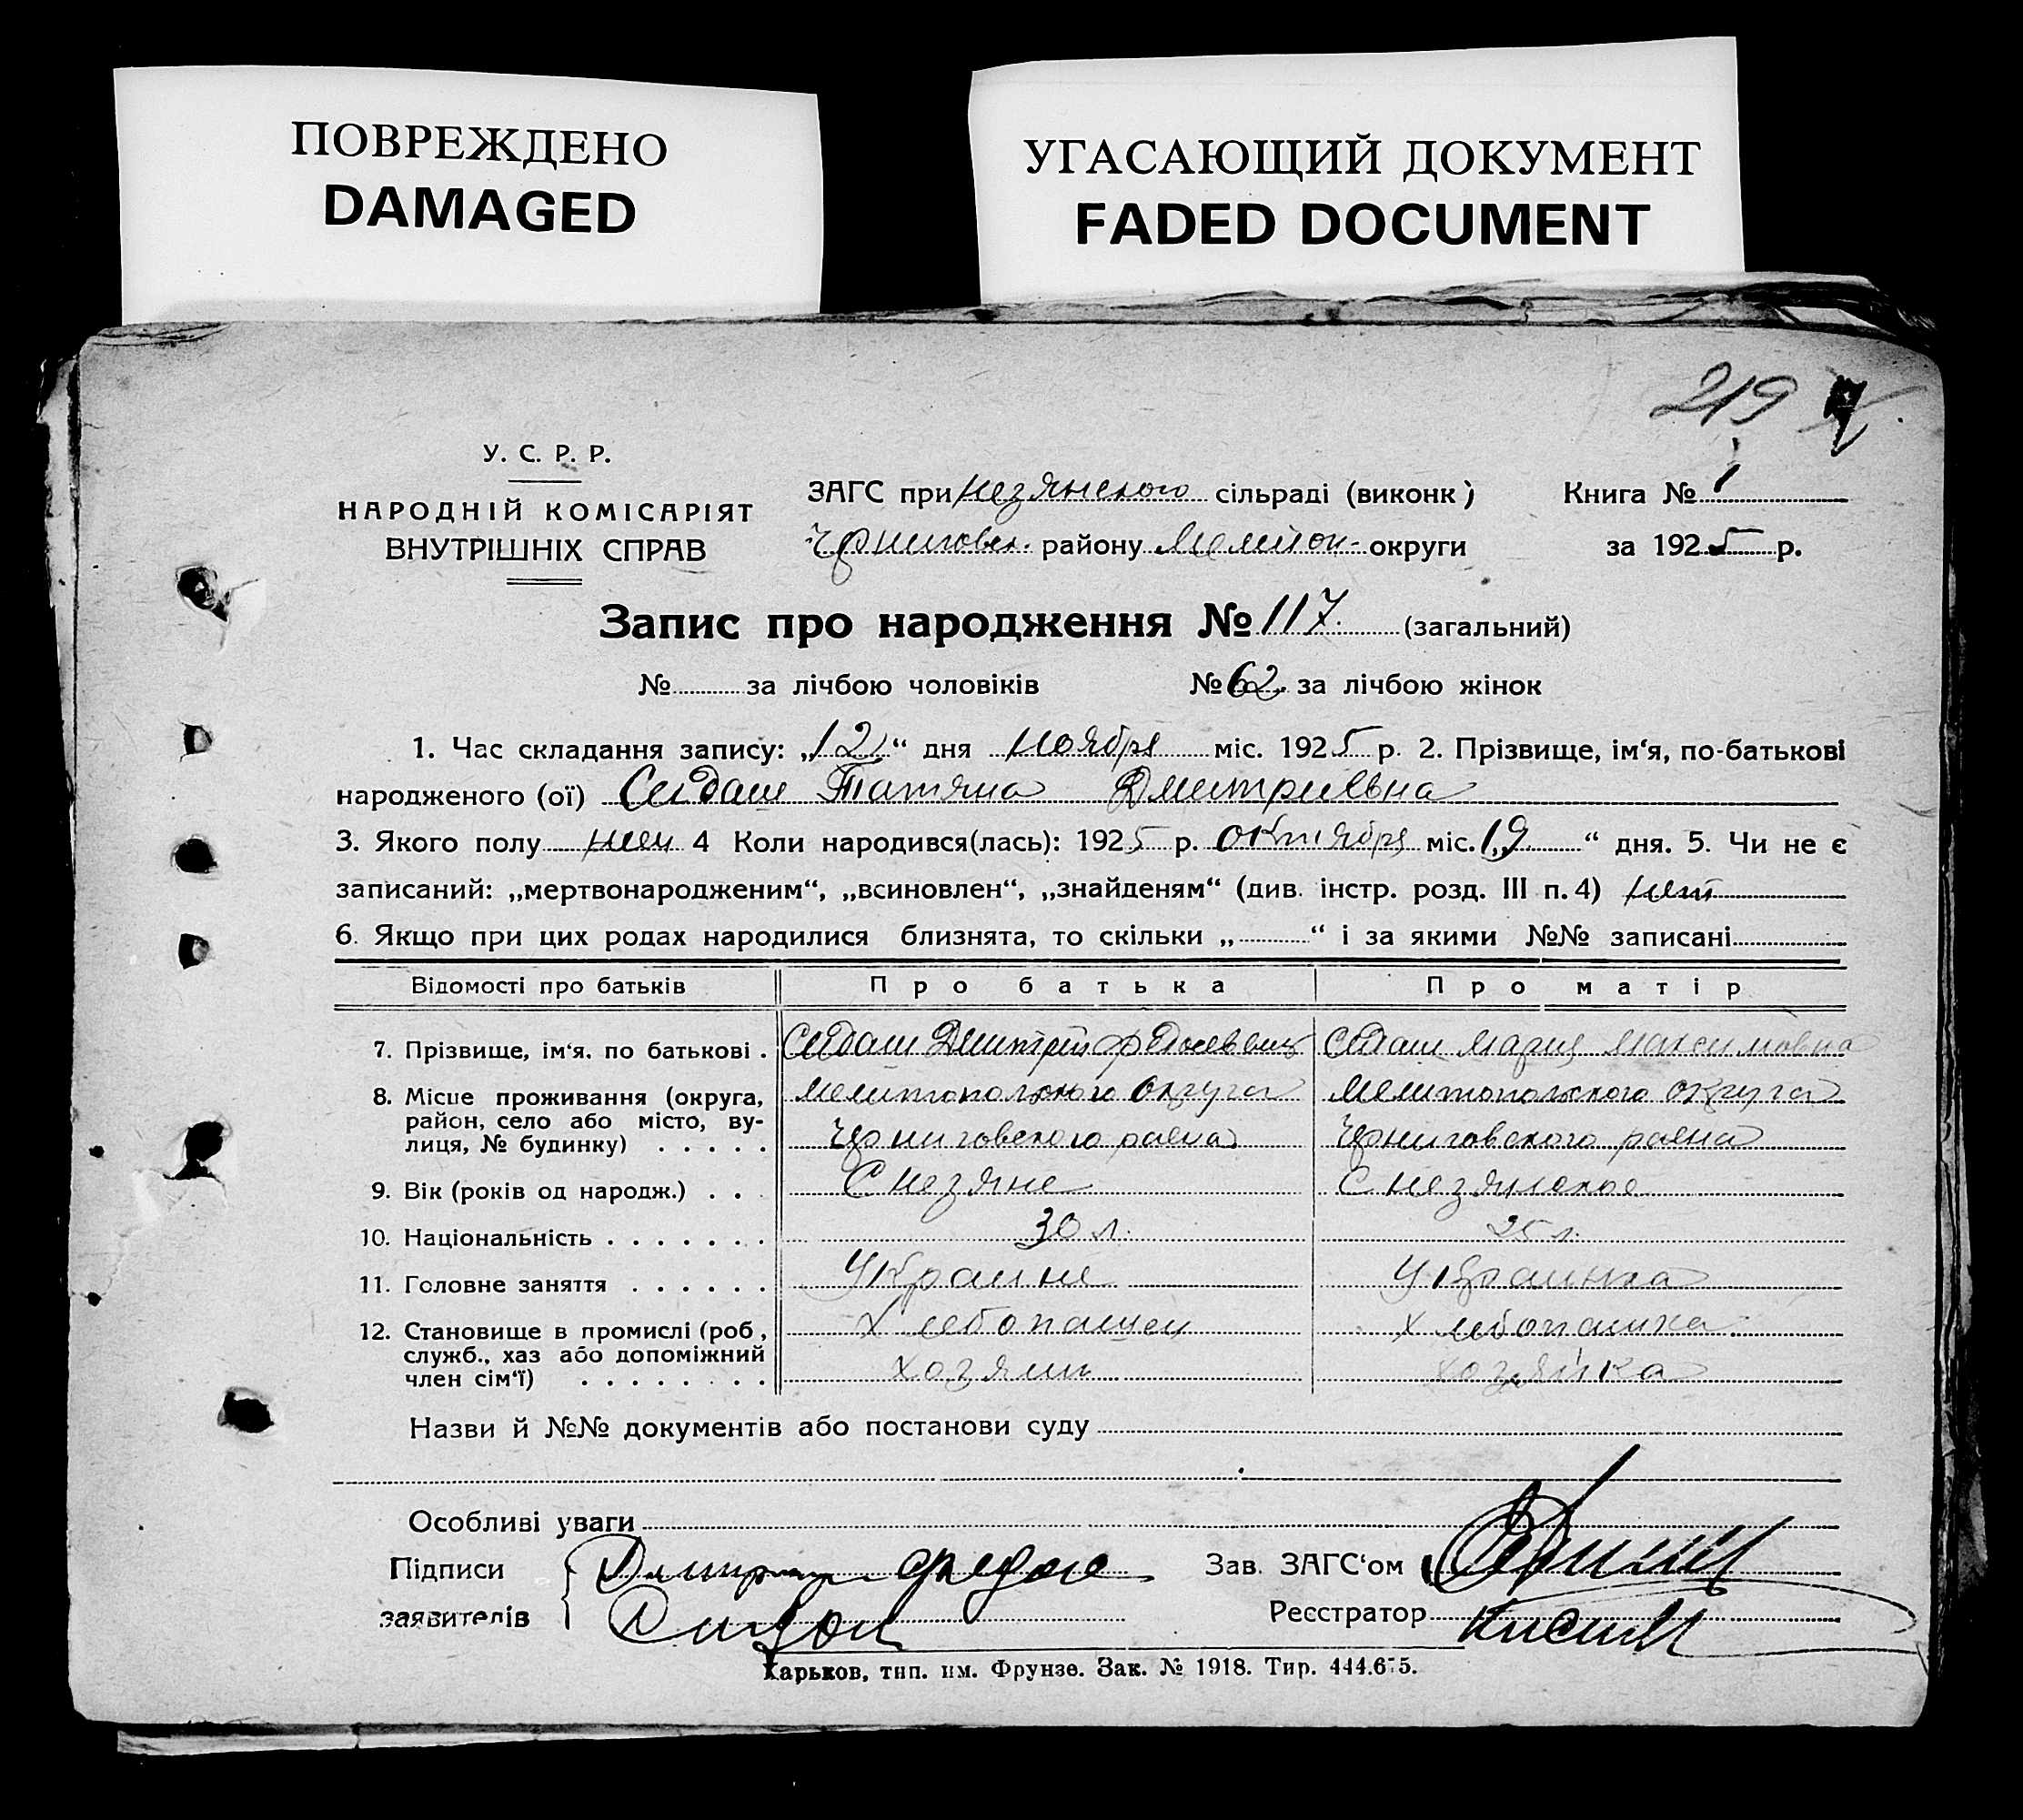 ПОВРЕЖДЕНО
DAMAGED
УГАСАЮЩИЙ ДОКУМЕНТ
FADED DOCUMENT
219
У. С. Р. Р.
НАРОДНІЙ КОМІСАРІЯТ
ВНУТРІШНІХ СПРАВ
ЗАГС при Незянского сільраді (виконк)
Черниговск. району Мелитоп- округи
Книга № 1
за 1925 р.
Запис про народження № 117. (загальний)
№ за лічбою чоловіків № 62. за лічбою жінок
1. Час складання запису: „12“ дня Ноября міс. 1925 р. 2. Прізвище, ім‘я, по-батькові
народженого (ої) Сидаш Татяна Дмитриевна
3. Якого полу жен 4 Коли народився(лась): 1925 р. Октября міс. 19 “ дня. 5. Чи не є
записаний: „мертвонародженим“, „всиновлен“, „знайденям“ (див. інстр. розд. III п. 4) нет
6. Якщо при цих родах народилися близнята, то скільки „ “ і за якими №№ записані
Відомості про батьків Про батька Про матір
7. Прізвище, ім‘я, по батькові . Сидаш Дмитрий Сидаш Мария Максимовна
8. Місце проживання (округа, Мелитопольского Округа Мелитопольского Округа
район, село або місто, ву-
лиця, № будинку) . . . . . Черниговского раена Черниговского раена
9. Вік (років од народж.) . . . С Незяне С Незянское
10. Національність . . . . . . . 30 л. 25 л.
11. Головне заняття . . . . . . Украине Украинка
12. Становище в промислі (роб, Хлебопашец Хлебопашка
служб., хаз або допоміжний
член сім‘ї) . . . . . . . . хозяин хозяйка
Назви й №№ документів або постанови суду
Особливі уваги
Підписи Дмитрий Зав. ЗАГС‘ом
заявителів Реєстратор
Харьков, тип. им. Фрунзе. Зак. № 1918. Тир. 444.675.